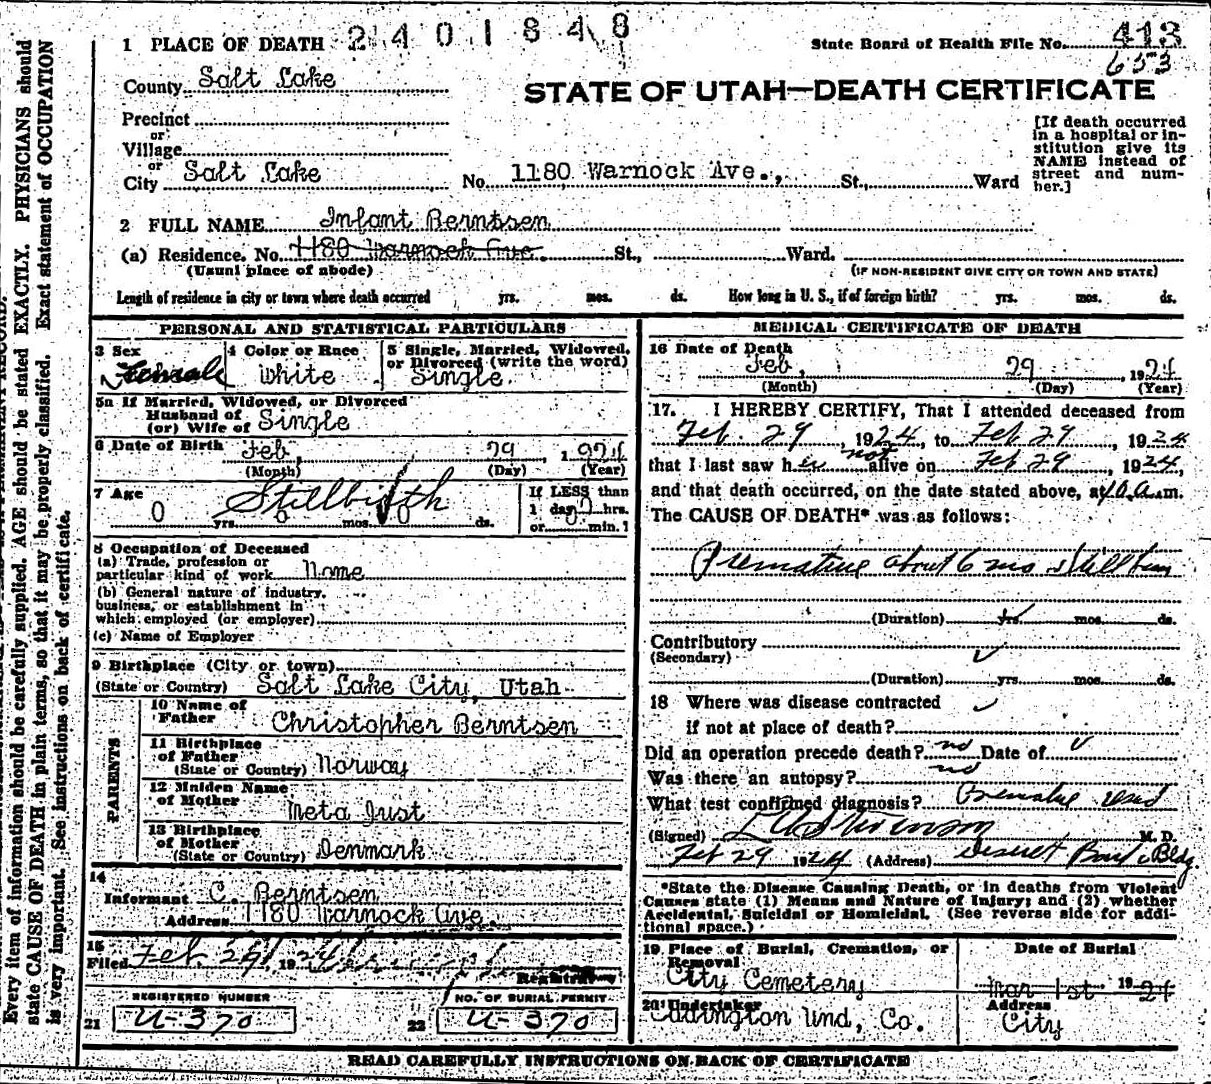 Every item of information should be carefully supplied. AGE should be stated EXACTLY. PHYSICIANS should
state CAUSE OF DEATH in plain terms, so that it may be properly classified. Exact statement of OCCUPATION
is very important. See instructions on back of certificate.
2401848
1 PLACE OF DEATH
State Board of Health File No. 413
653
County Salt Lake
STATE OF UTAH—DEATH CERTIFICATE
Precinct
or
Village
or
City Salt Lake No. 1180 Warnock Ave., St., Ward
[If death occurred
in a hospital or in-
stitution give its
NAME instead of
street and num-
ber.]
2 FULL NAME Infant Berntsen
(a) Residence. No. 1180 Warnock Ave. St., Ward.
(Usual place of abode)
(IF NON-RESIDENT GIVE CITY OR TOWN AND STATE)
Length of residence in city or town where death occurred yrs. mos. ds. How long in U. S., if of foreign birth? yrs. mos. ds.
PERSONAL AND STATISTICAL PARTICULARS
3 Sex
Female
4 Color or Race
White
5 Single, Married, Widowed,
or Divorced (write the word)
Single.
5a If Married, Widowed, or Divorced
Husband of
(or) Wife of Single
6 Date of Birth Feb, 29 1924
(Month) (Day) (Year)
7 Age
Stillbirth
0 yrs. 0 mos. 0 ds.
If LESS than
1 day 0 hrs.
or min.
8 Occupation of Deceased
(a) Trade, profession or
particular kind of work None
(b) General nature of industry,
business, or establishment in
which employed (or employer)
(c) Name of Employer
9 Birthplace (City or town)
(State or Country) Salt Lake City, Utah
PARENTS
10 Name of
Father Christopher Berntsen
11 Birthplace
of Father
(State or Country) Norway
12 Maiden Name
of Mother Meta Just
13 Birthplace
of Mother
(State or Country) Denmark
14
Informant C. Berntsen
Address 1180 Warnock Ave.
15
Filed Feb. 29, 1924
Registrar
REGISTERED NUMBER
21 U-370
NO. OF BURIAL PERMIT
22 U-370
MEDICAL CERTIFICATE OF DEATH
16 Date of Death
Feb, 29, 1924
(Month) (Day) (Year)
17. I HEREBY CERTIFY, That I attended deceased from
Feb. 29, 1924, to Feb 29, 1924
that I last saw her not alive on Feb 29, 1924,
and that death occurred, on the date stated above, at 10 a.m.
The CAUSE OF DEATH* was as follows:
Premature about 6 mo Stillborn
(Duration) yrs. mos. ds.
Contributory
(Secondary)
(Duration) yrs. mos. ds.
18 Where was disease contracted
if not at place of death?
Did an operation precede death? no Date of
Was there an autopsy? no
What test confirmed diagnosis?
(Signed) M. D.
Feb 29 1924 (Address) Deseret Bank Bldg
*State the Disease Causing Death, or in deaths from Violent
Causes state (1) Means and Nature of Injury; and (2) whether
Accidental, Suicidal or Homicidal. (See reverse side for addi-
tional space.)
19 Place of Burial, Cremation, or
Removal
City Cemetery
Date of Burial
Mar 1st 1924
20 Undertaker
Eddington Und, Co.
Address
City
READ CAREFULLY INSTRUCTIONS ON BACK OF CERTIFICATE